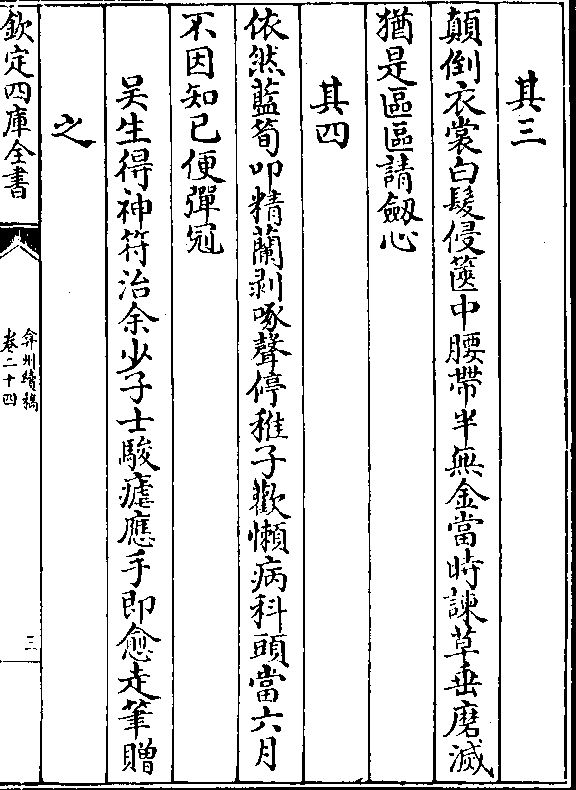 其三
顛倒衣裳白髮侵篋中腰帶半無金當時諫草垂磨滅
猶是區區請劔心
其四
依然藍筍叩精蘭剥啄聲停稚子歡懶病科頭當六月
不因知已便彈冠
吴生得神符治余少子士駿瘧應手即愈走筆贈
之
欽定四庫全書
弇州續稿
卷二十四
三